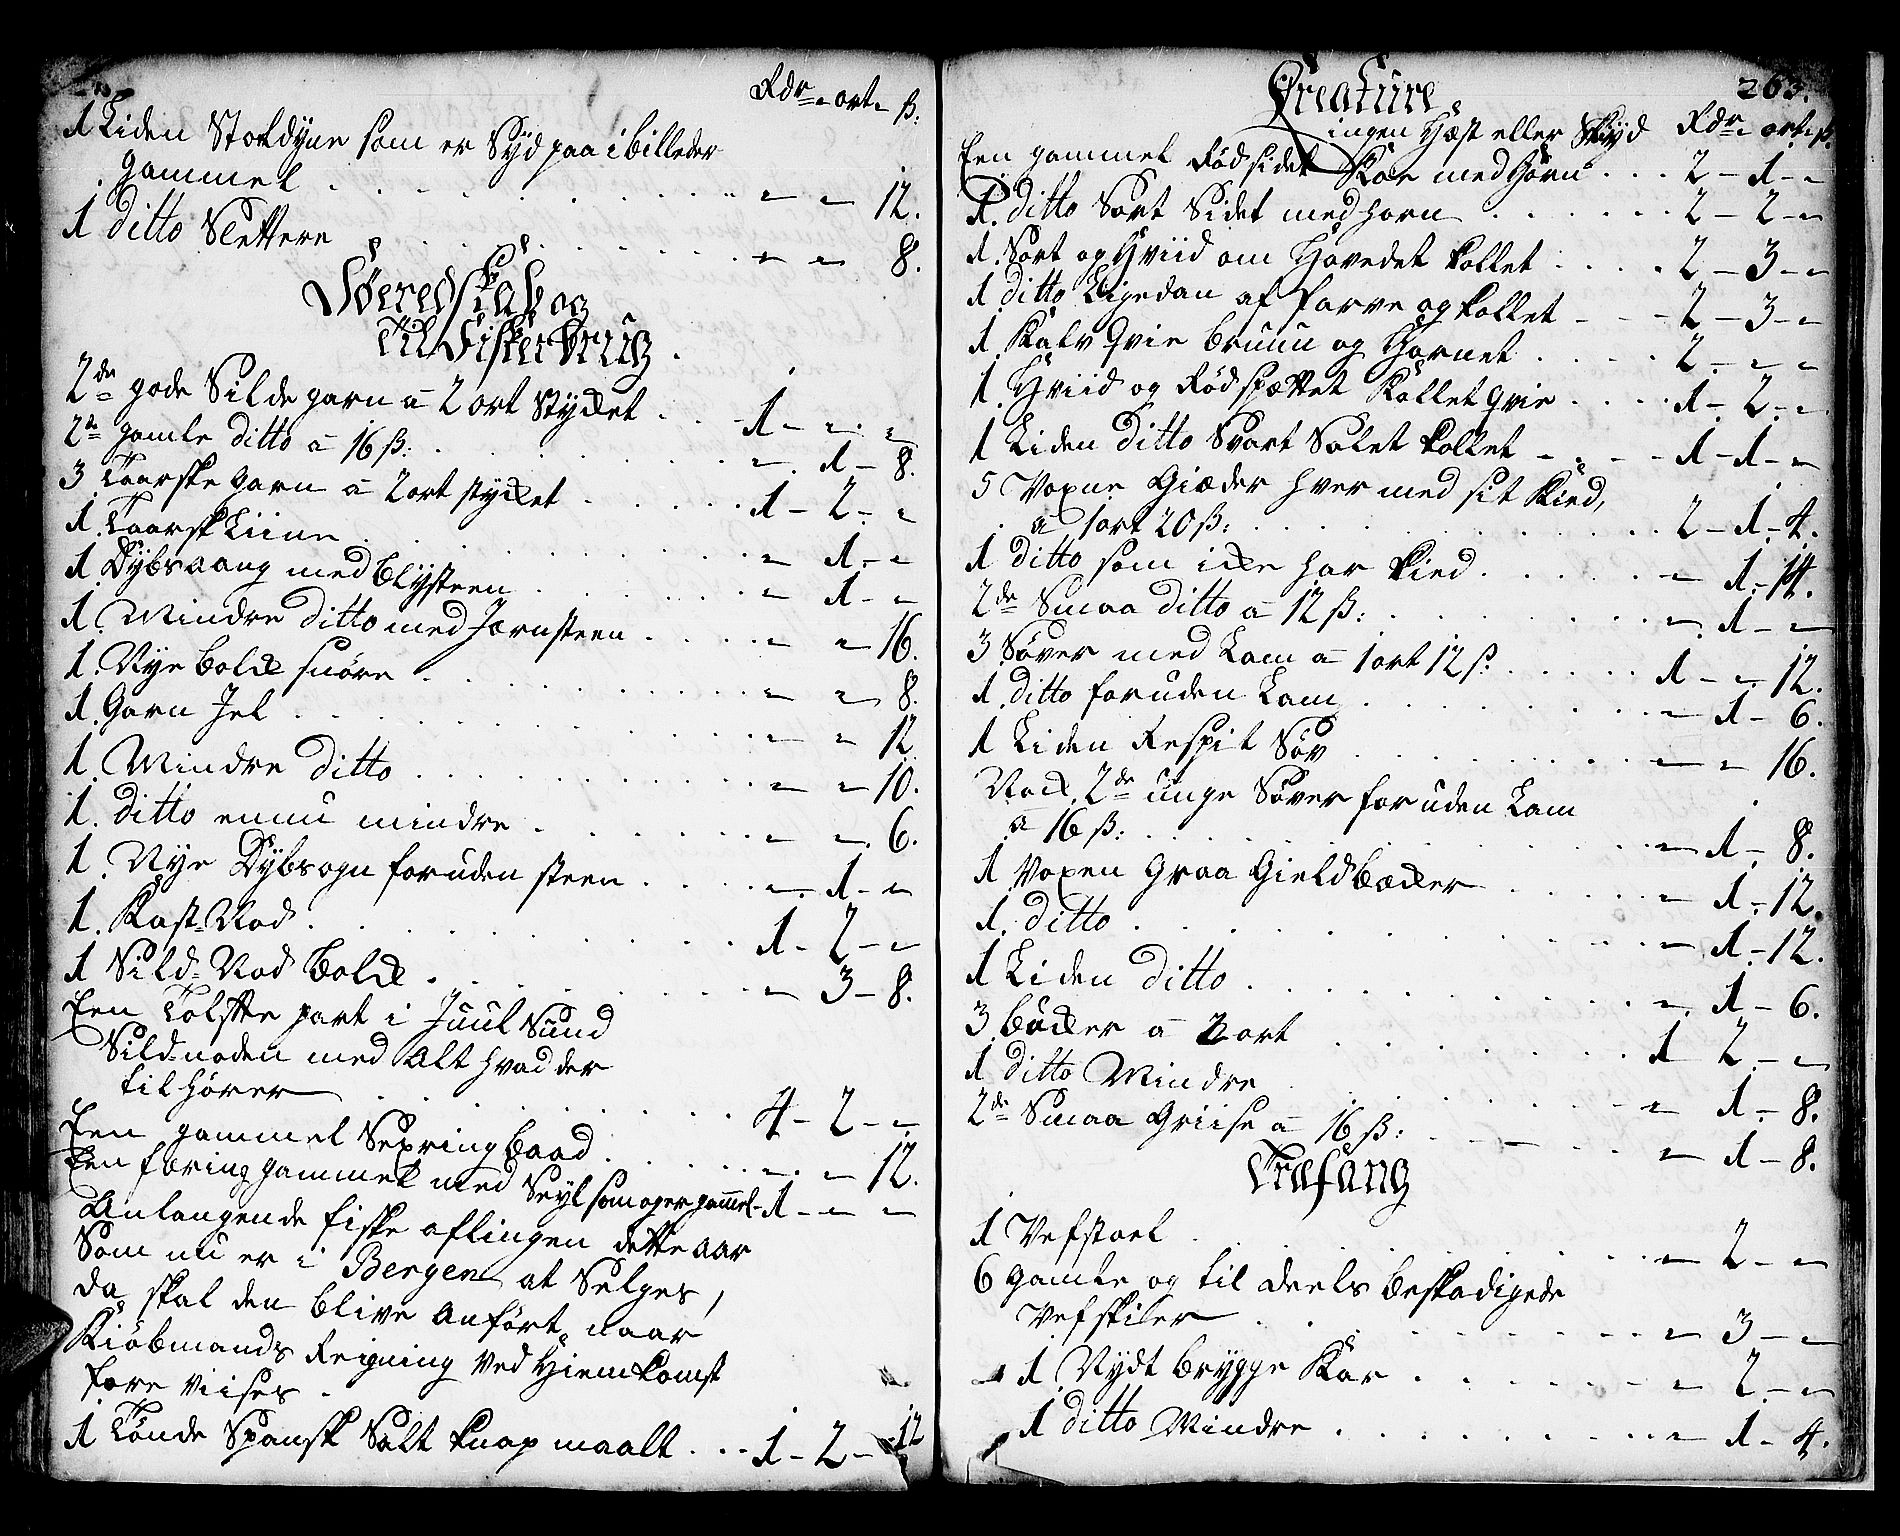 Rdr - ort - ß:
1 Liden Stoldyne som er Syd paa i billeder
gammel . . . - - 12.
1 ditto Slettere . . . - - 8.
Søeredskab og
til Fiskerbrug.
2de gode Sildegarn a 2 ort Stycket . . 1 - - -
2de gamle ditto a 16 ß: . . . - 1 - 8.
3 Taarske garn a 2 ort stycket . . . 1 - 2 - -
1 Taarsk Liine . . . - 1 - -
1 Dybsaang med Blysteen . . . - 1 - -
1. Mindre ditto med Jernsteen . . . - - 16.
1. Nye bolck snøre . . . - - 8.
1. Garn Jel . . . - - 12.
1. Mindre ditto . . . - - 10.
1. ditto ennu mindre . . . - - 6.
1. Nye Dybsogn foruden steen . . . - 1 - -
1. Kast-Nod . . . 1 - 2 - -
1 Sild-Nod bolck . . . - 3 - 8.
Een Tolfte part i Juul Sund
Sild-noden med Alt hvad der
til hører . . . 4 - 2 - -
Een gammel Sexring baad . . . - - 12.
Een færing gammel med Seyl som og er gammel - 1 - - -
Anlangende fiske aflingen dette aar
Som nu er i Bergen at Selges,
da skal den blive Anført, naar
Kiøbmands Reigning ved Hiemkomst
fore viises.
1 Tønde Spansk Salt knap maalt . . . 1 - 2 - 12
263.
Creature
ingen Hæst eller Skyd Rdr - ort - ß.
Een gammel Rødsidet Koe med Horn . . . 2 - 1 - -
1. ditto Sort Sidet med horn . . . 2 - 2 - -
1. Sort og Hviid om Hovedet kollet . . . 2 - 3 - -
1 ditto Ligedan af farve og kollet - - 2 - 3 - -
1. Kalv Qvie bruun og Hornet . . . 2 - - -
1. Hviid og Rødspættet Kollet Qvie . . . 1 - 2 - -
1 Liden ditto Svart Solet kollet - . - 1 - 1 - -
5 Voxne Gieder hver med sit Kied,
a 1 ort 20 ß: . . . 2 - 1 - 4.
1 ditto som icke har Kied . . . - 1 - 14.
2de Smaa ditto a 12 ß: . . . - 1 - -
3 Søver med Lam a 1 ort 12 ß . . . 1 - - 12.
1. ditto foruden Lam . . . - 1 - 6.
1 Liden Respit Søv . . . - - 16.
Nock 2de unge Søver foruden Lam
a 16 ß: . . . - 1 - 8.
1 Voxen Graa Gieldbæcker . . . - 1 - 12.
1. ditto . . . - 1 - 12.
1 Liden ditto . . . - 1 - 6.
3 bucker a 2 ort . . . 1 2 - -
1 ditto Mindre . . . - 1 - 8.
2de Smaa Griise a 16 ß: . . . - 1 - 8.
Træfang
1 Vefstoel . . . - 2 - -
6 gamle og til deels beskadigede
Vefskiler . . . - 3 - -
1. Nydt brygge Kar . . . - 2 - -
1 ditto Mindre . . . - 1 - 4.